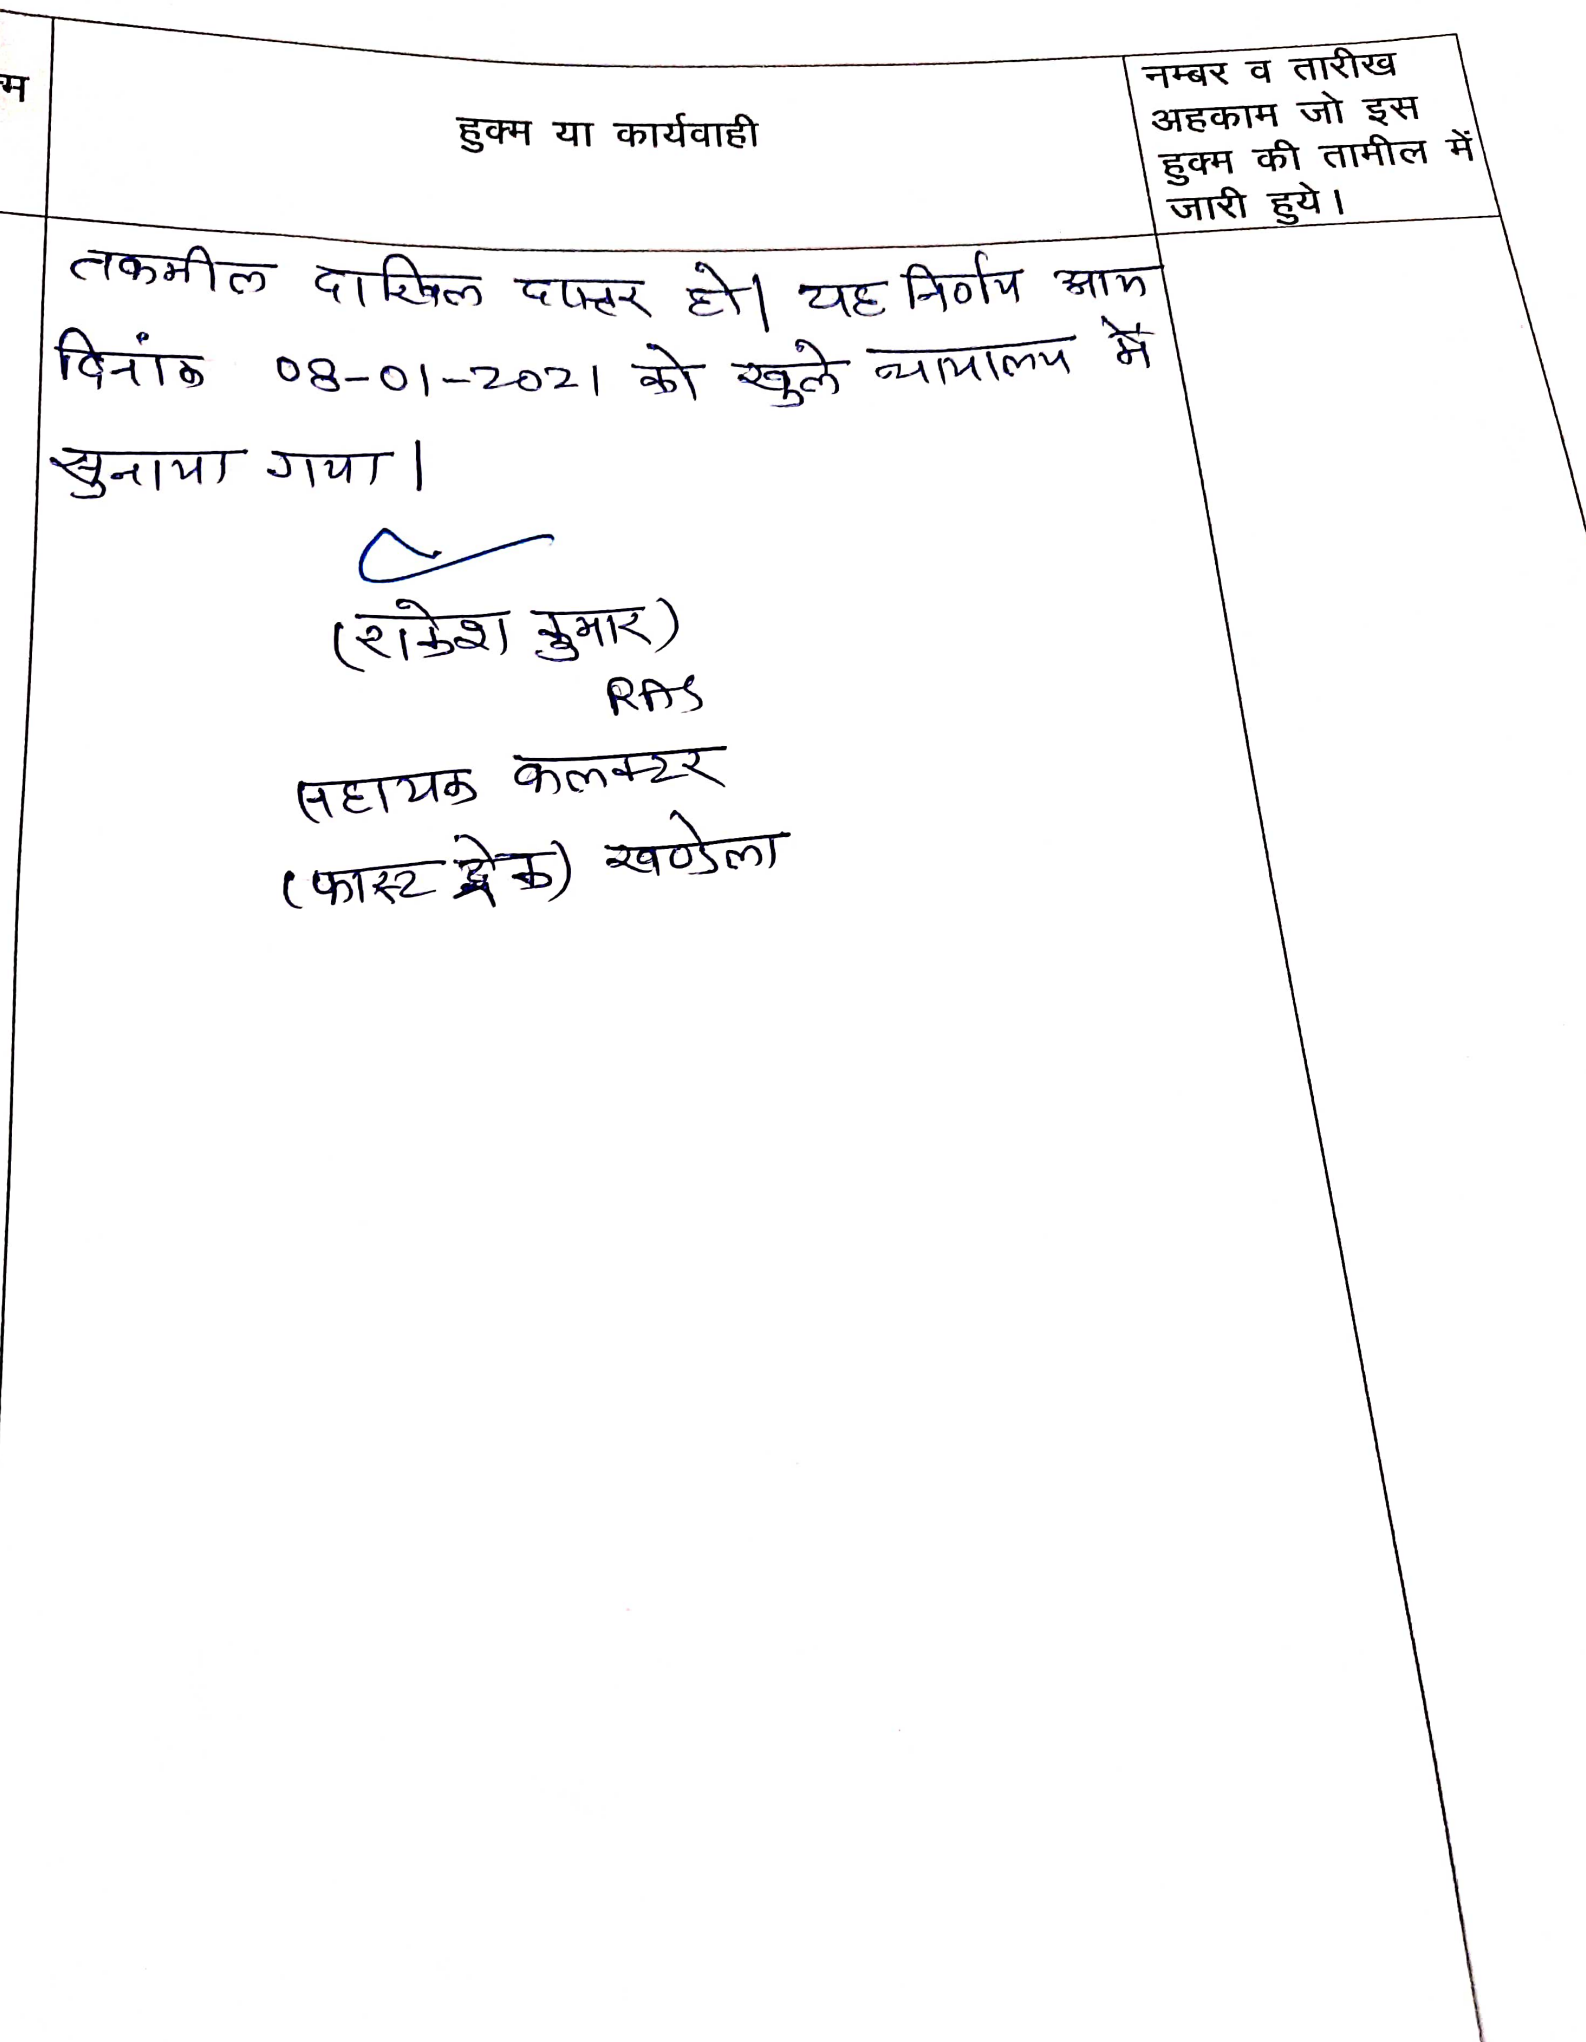 म
हुक्म या कार्यवाही
नम्बर व तारीख
अहकाम जो इस
हुक्म की तामील में
जारी हुये।
तकमील दाखिल दफ्तर हो। यह निर्णय आज
दिनांक 08-01-2021 को खुले न्यायालय में
सुनाया गया।
(राकेश कुमार)
RAS
सहायक कलक्टर
(फास्ट ट्रेक) खण्डेला